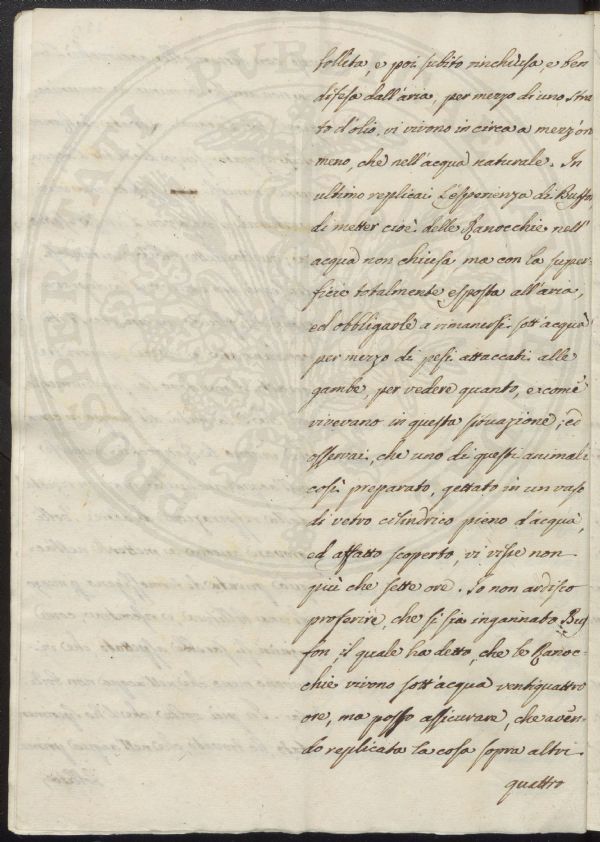 bollita, e poi subito rinchiusa, e ben
difesa dall'aria, per mezzo di uno stra
to d'olio, vi vivono in circa a mezz'ora
meno, che nell'acqua naturale. In
ultimo replicai L'esperienza di Buffon
di metter cioè delle Ranocchie nell'
acqua non chiusa ma con la super-
ficie totalmente esposta all'aria,
ed obbligarle a rimanersi sott'acqua
per mezzo di pesi attaccati alle
gambe, per vedere quanto, e come
vivevano in questa situazione; ed
osservai, che uno di questi animali
così preparato, gettato in un vaso
di vetro cilindrico pieno d'acqua,
ed affatto scoperto, vi visse non
più che sette ore. Io non ardisco
proferire, che si sia ingannato Buf
fon, il quale ha detto, che le Ranoc-
chie vivono sott'acqua ventiquattro
ore, ma posso assicurare, che aven-
do replicata la cosa sopra altri
quattro